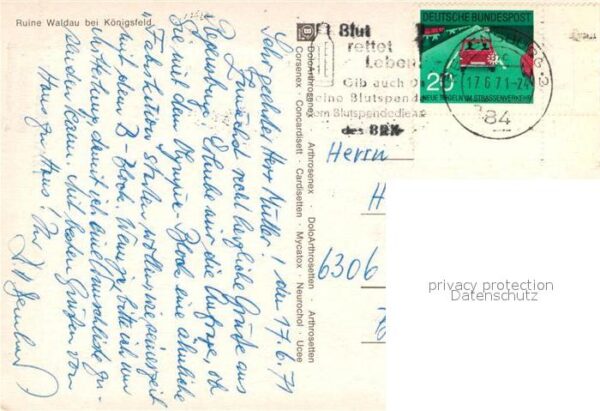 Ruine Waldau bei Königsfeld
Sehr geehrter Herr Müller! den 17.6.71
Zunächst recht herzliche Grüße aus
Regensburg. Erlaube mir die Anfrage, ob
Sie mit dem Olympia-Block eine ähnliche
"Fabrikation" starten wollen wie seinerzeit
mit dem B-Block. Wenn ja bitte ich um
Mitteilung, damit ich eine Wunschliste zu-
senden kann. Mit besten Grüßen von
Haus zu Haus! Ihr
DoloArthrosenex · Arthrosenex · DoloArthrosetten · Arthrosetten
Corsenex · Concardisett · Cardisetten · Mycatox · Neurochol · Ucee
Blut
rettet
Leben
Gib auch D
eine Blutspende
em Blutspendedienst
des BRK
DEUTSCHE BUNDESPOST
20
NEUE REGELN IM STRASSENVERKEHR
2
17.6.71-24
84
Herrn
H
6306
privacy protection
Datenschutz